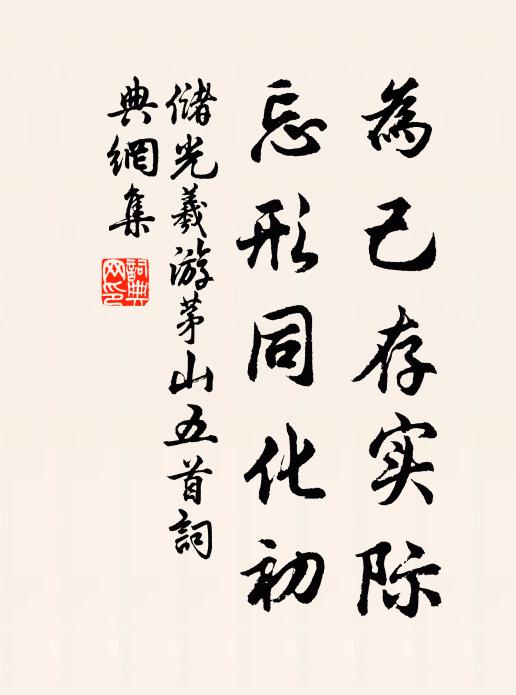 為己存实际
忘形同化初
儲光羲游茅山五首詞
典網集
詞典
网印